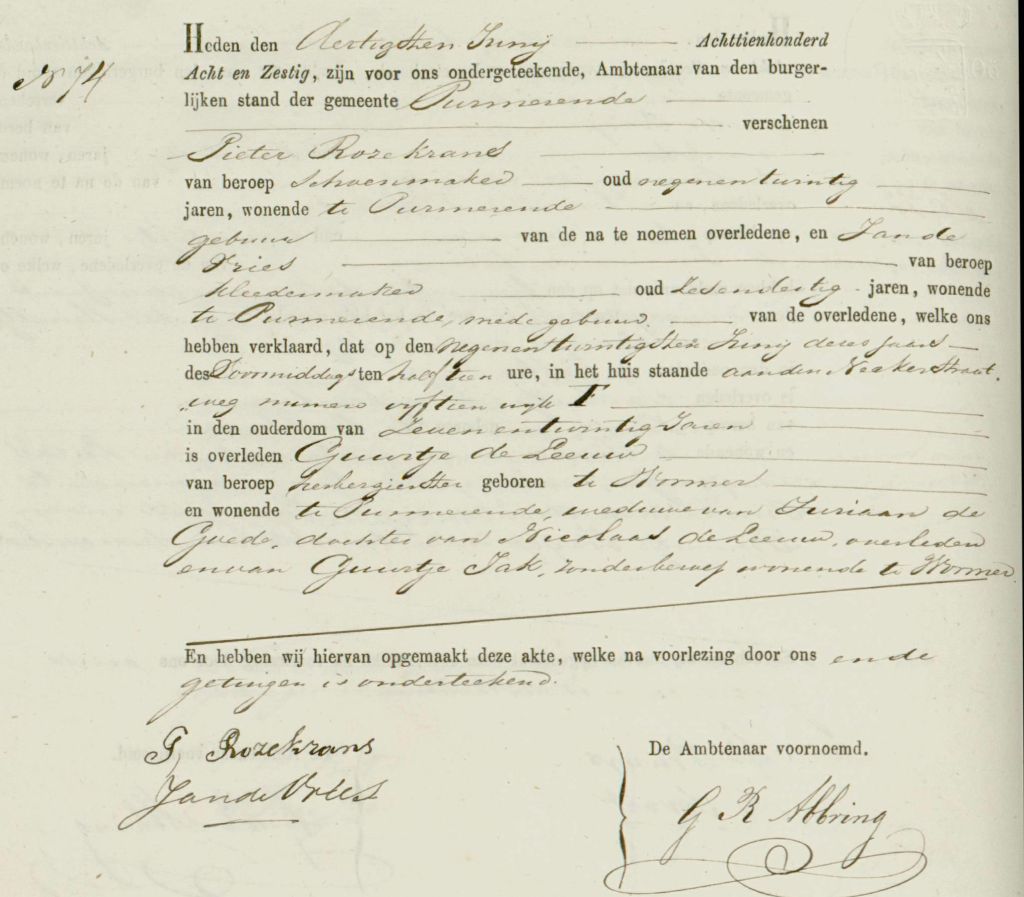 No 74
Heden den Dertigsten Junij Achttienhonderd
Acht en Zestig, zijn voor ons ondergeteekende, Ambtenaar van den burger-
lijken stand der gemeente Purmerende
verschenen
Pieter Rozekrans
van beroep Schoenmaker oud negenentwintig
jaren, wonende te Purmerende
gebuur van de na te noemen overledene, en Jan de
Vries van beroep
kleedermaker oud Zesendertig jaren, wonende
te Purmerende, mede gebuur van de overledene, welke ons
hebben verklaard, dat op den negenentwintigsten Junij dezes jaars
des Voormiddags ten half tien ure, in het huis staande aan den Neaker Straat
weg numero vijftien wijk F
in den ouderdom van Zevenentwintig Jaren
is overleden Guurtje de Leeuw
van beroep herbergierster geboren te Wormer
en wonende te Purmerende, weduwe van Juriaan de
Goede, dochter van Nicolaas de Leeuw, overleden
en van Guurtje Jak, zonder beroep wonende te Wormer.
En hebben wij hiervan opgemaakt deze akte, welke na voorlezing door ons en de
getuigen is onderteekend.
P, Rozekrans
Jan de Vries
De Ambtenaar voornoemd.
G R Abbring